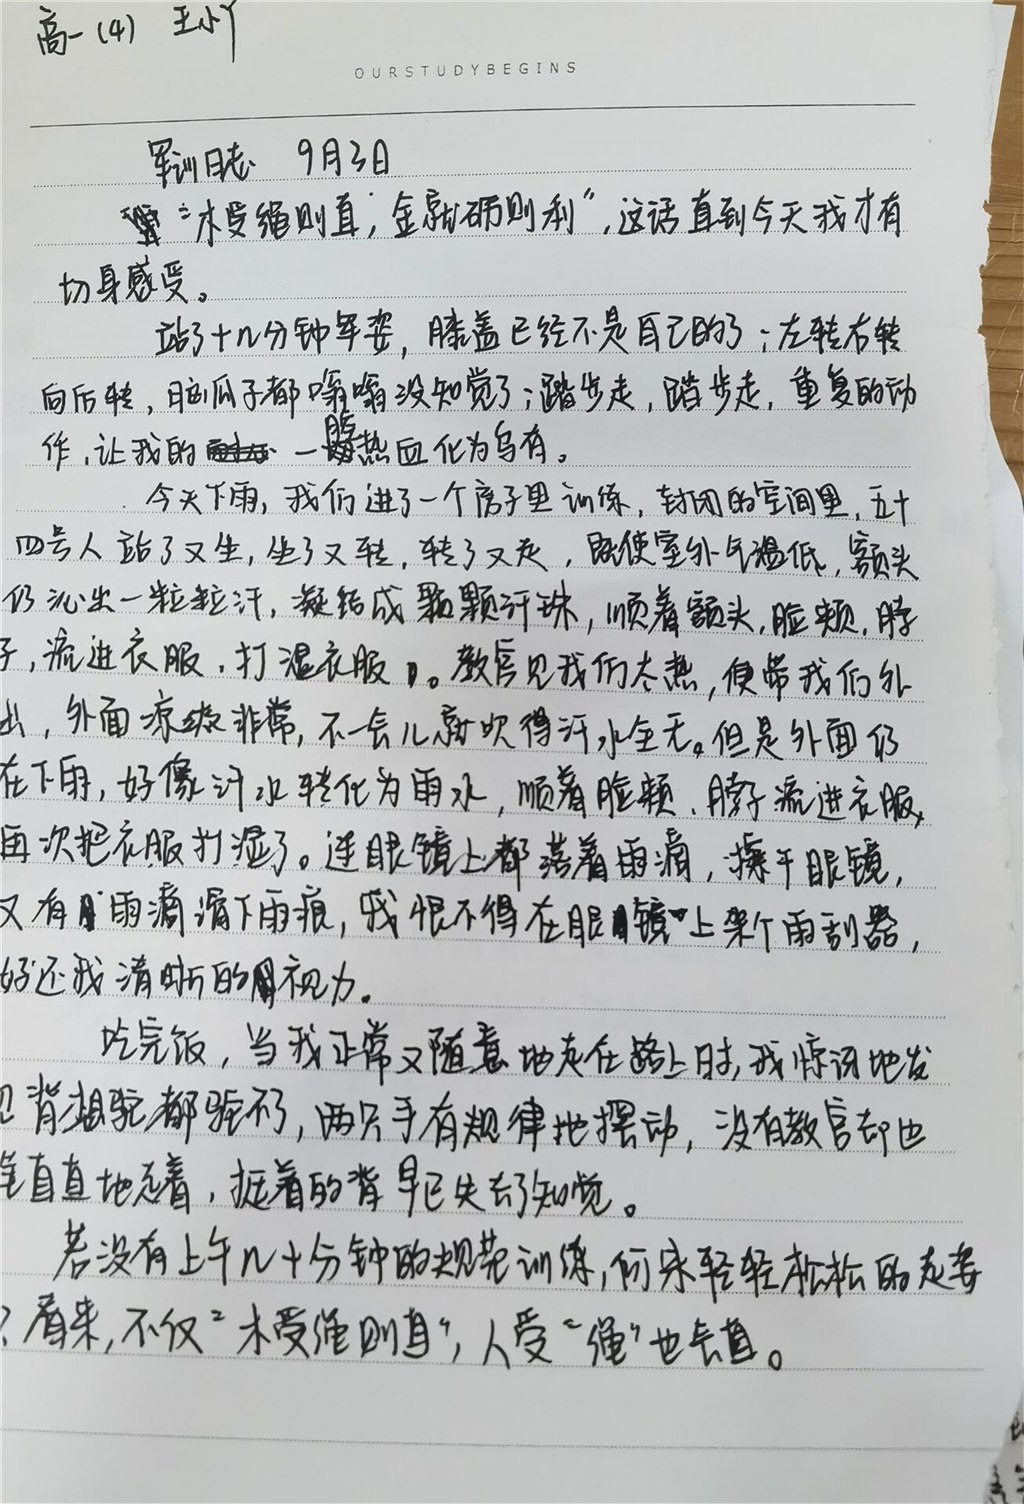 高一(4) 王小丫
OURSTUDYBEGINS
军训日志 9月3日
"木受绳则直,金就砺则利",这话直到今天我才有
切身感受。
站了十几分钟军姿,膝盖已经不是自己的了;左转右转
向后转,脑瓜子都嗡嗡没知觉了;踏步走,踏步走,重复的动
作,让我的一腔热血化为乌有。
今天下雨,我们进了一个房子里训练,封闭的空间里,五十
四号人站了又坐,坐了又转,转了又走,既使室外气温低,额头
仍沁出一粒粒汗,凝结成颗颗汗珠,顺着额头,脸颊,脖
子,流进衣服,打湿衣服。教官见我们太热,便带我们外
出,外面凉爽非常,不一会儿就吹得汗水全无。但是外面仍
在下雨,好像汗水转化为雨水,顺着脸颊、脖子流进衣服,
再次把衣服打湿了。连眼镜上都落着雨滴,擦干眼镜,
又有雨滴滑下雨痕,我恨不得在眼镜上架个雨刮器,
好还我清晰的视力。
吃完饭,当我正常又随意地走在路上时,我惊讶地发
见背想驼都驼不了,两只手有规律地摆动,没有教官却也
笔直直地走着,挺着的背早已失去了知觉。
若没有上午几十分钟的规范训练,何来轻轻松松的走姿
?看来,不仅"木受绳则直",人受"绳"也长直。